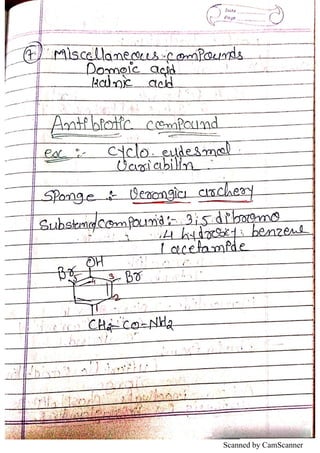 Date
Page
7 Miscellaneous compounds
Domoic acid
Kainic acid
Antibiotic compound
ex :- Cyclo eudesmol
Variabilin
Sponge :- Verongia archery
Substance/compound :- 3,5 dibromo
4 hydroxy benzene
1 acetamide
OH
Br 5 4 3 Br
2
1
CH2-CO-NH2
Scanned by CamScanner